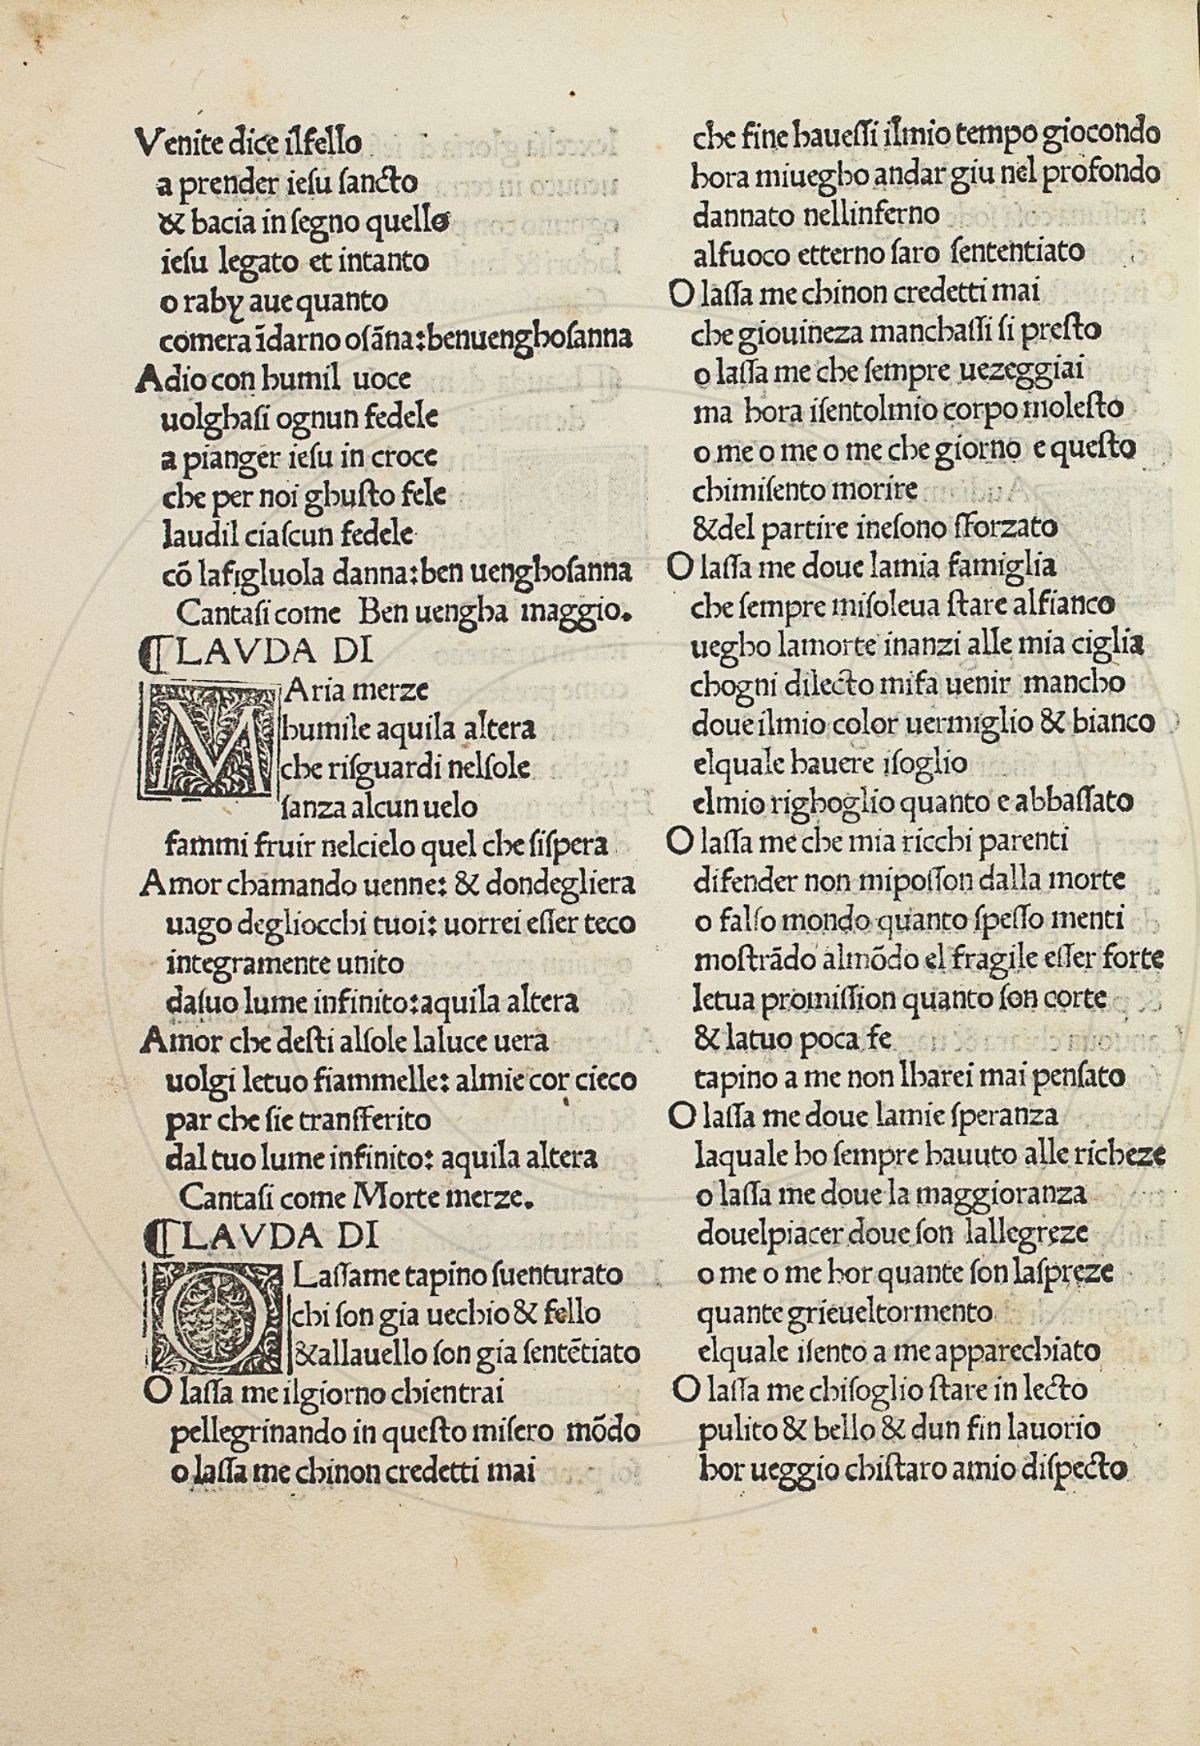 Venite dice ilfello
a prender iesu sancto
& bacia in segno quello
iesu legato et intanto
o raby aue quanto
comera īdarno osāna:benuenghosanna
Adio con humil uoce
uolghasi ognun fedele
a pianger iesu in croce
che per noi ghusto fele
laudil ciascun fedele
cō lafigluola danna:ben uenghosanna
Cantasi come Ben uengha maggio.
¶LAVDA DI
MAria merze
humile aquila altera
che risguardi nelsole
sanza alcun uelo
fammi fruir nelcielo quel che sispera
Amor chamando uenne: & dondegliera
uago degliocchi tuoi: uorrei esser teco
integramente unito
dasuo lume infinito:aquila altera
Amor che desti alsole laluce uera
uolgi letuo fiammelle: almie cor cieco
par che sie transferito
dal tuo lume infinito: aquila altera
Cantasi come Morte merze.
¶LAVDA DI
OLassame tapino suenturato
chi son gia uechio & fello
&allauello son gia sentētiato
O lassa me ilgiorno chientrai
pellegrinando in questo misero mōdo
o lassa me chinon credetti mai
che fine hauessi ilmio tempo giocondo
hora miuegho andar giu nel profondo
dannato nellinferno
alfuoco etterno saro sententiato
O lassa me chinon credetti mai
che giouineza manchassi si presto
o lassa me che sempre uezeggiai
ma hora isentolmio corpo molesto
o me o me o me che giorno e questo
chimisento morire
&del partire inesono sforzato
O lassa me doue lamia famiglia
che sempre misoleua stare alfianco
uegho lamorte inanzi alle mia ciglia
chogni dilecto mifa uenir mancho
doue ilmio color uermiglio & bianco
elquale hauere isoglio
elmio righoglio quanto e abbassato
O lassa me che mia ricchi parenti
difender non miposson dalla morte
o falso mondo quanto spesso menti
mostrādo almōdo el fragile esser forte
letua promission quanto son corte
& latuo poca fe
tapino a me non lharei mai pensato
O lassa me doue lamie speranza
laquale ho sempre hauuto alle richeze
o lassa me doue la maggioranza
douelpiacer doue son lallegreze
o me o me hor quante son laspreze
quante grieueltormento
elquale isento a me apparechiato
O lassa me chisoglio stare in lecto
pulito & bello & dun fin lauorio
hor ueggio chistaro amio dispecto